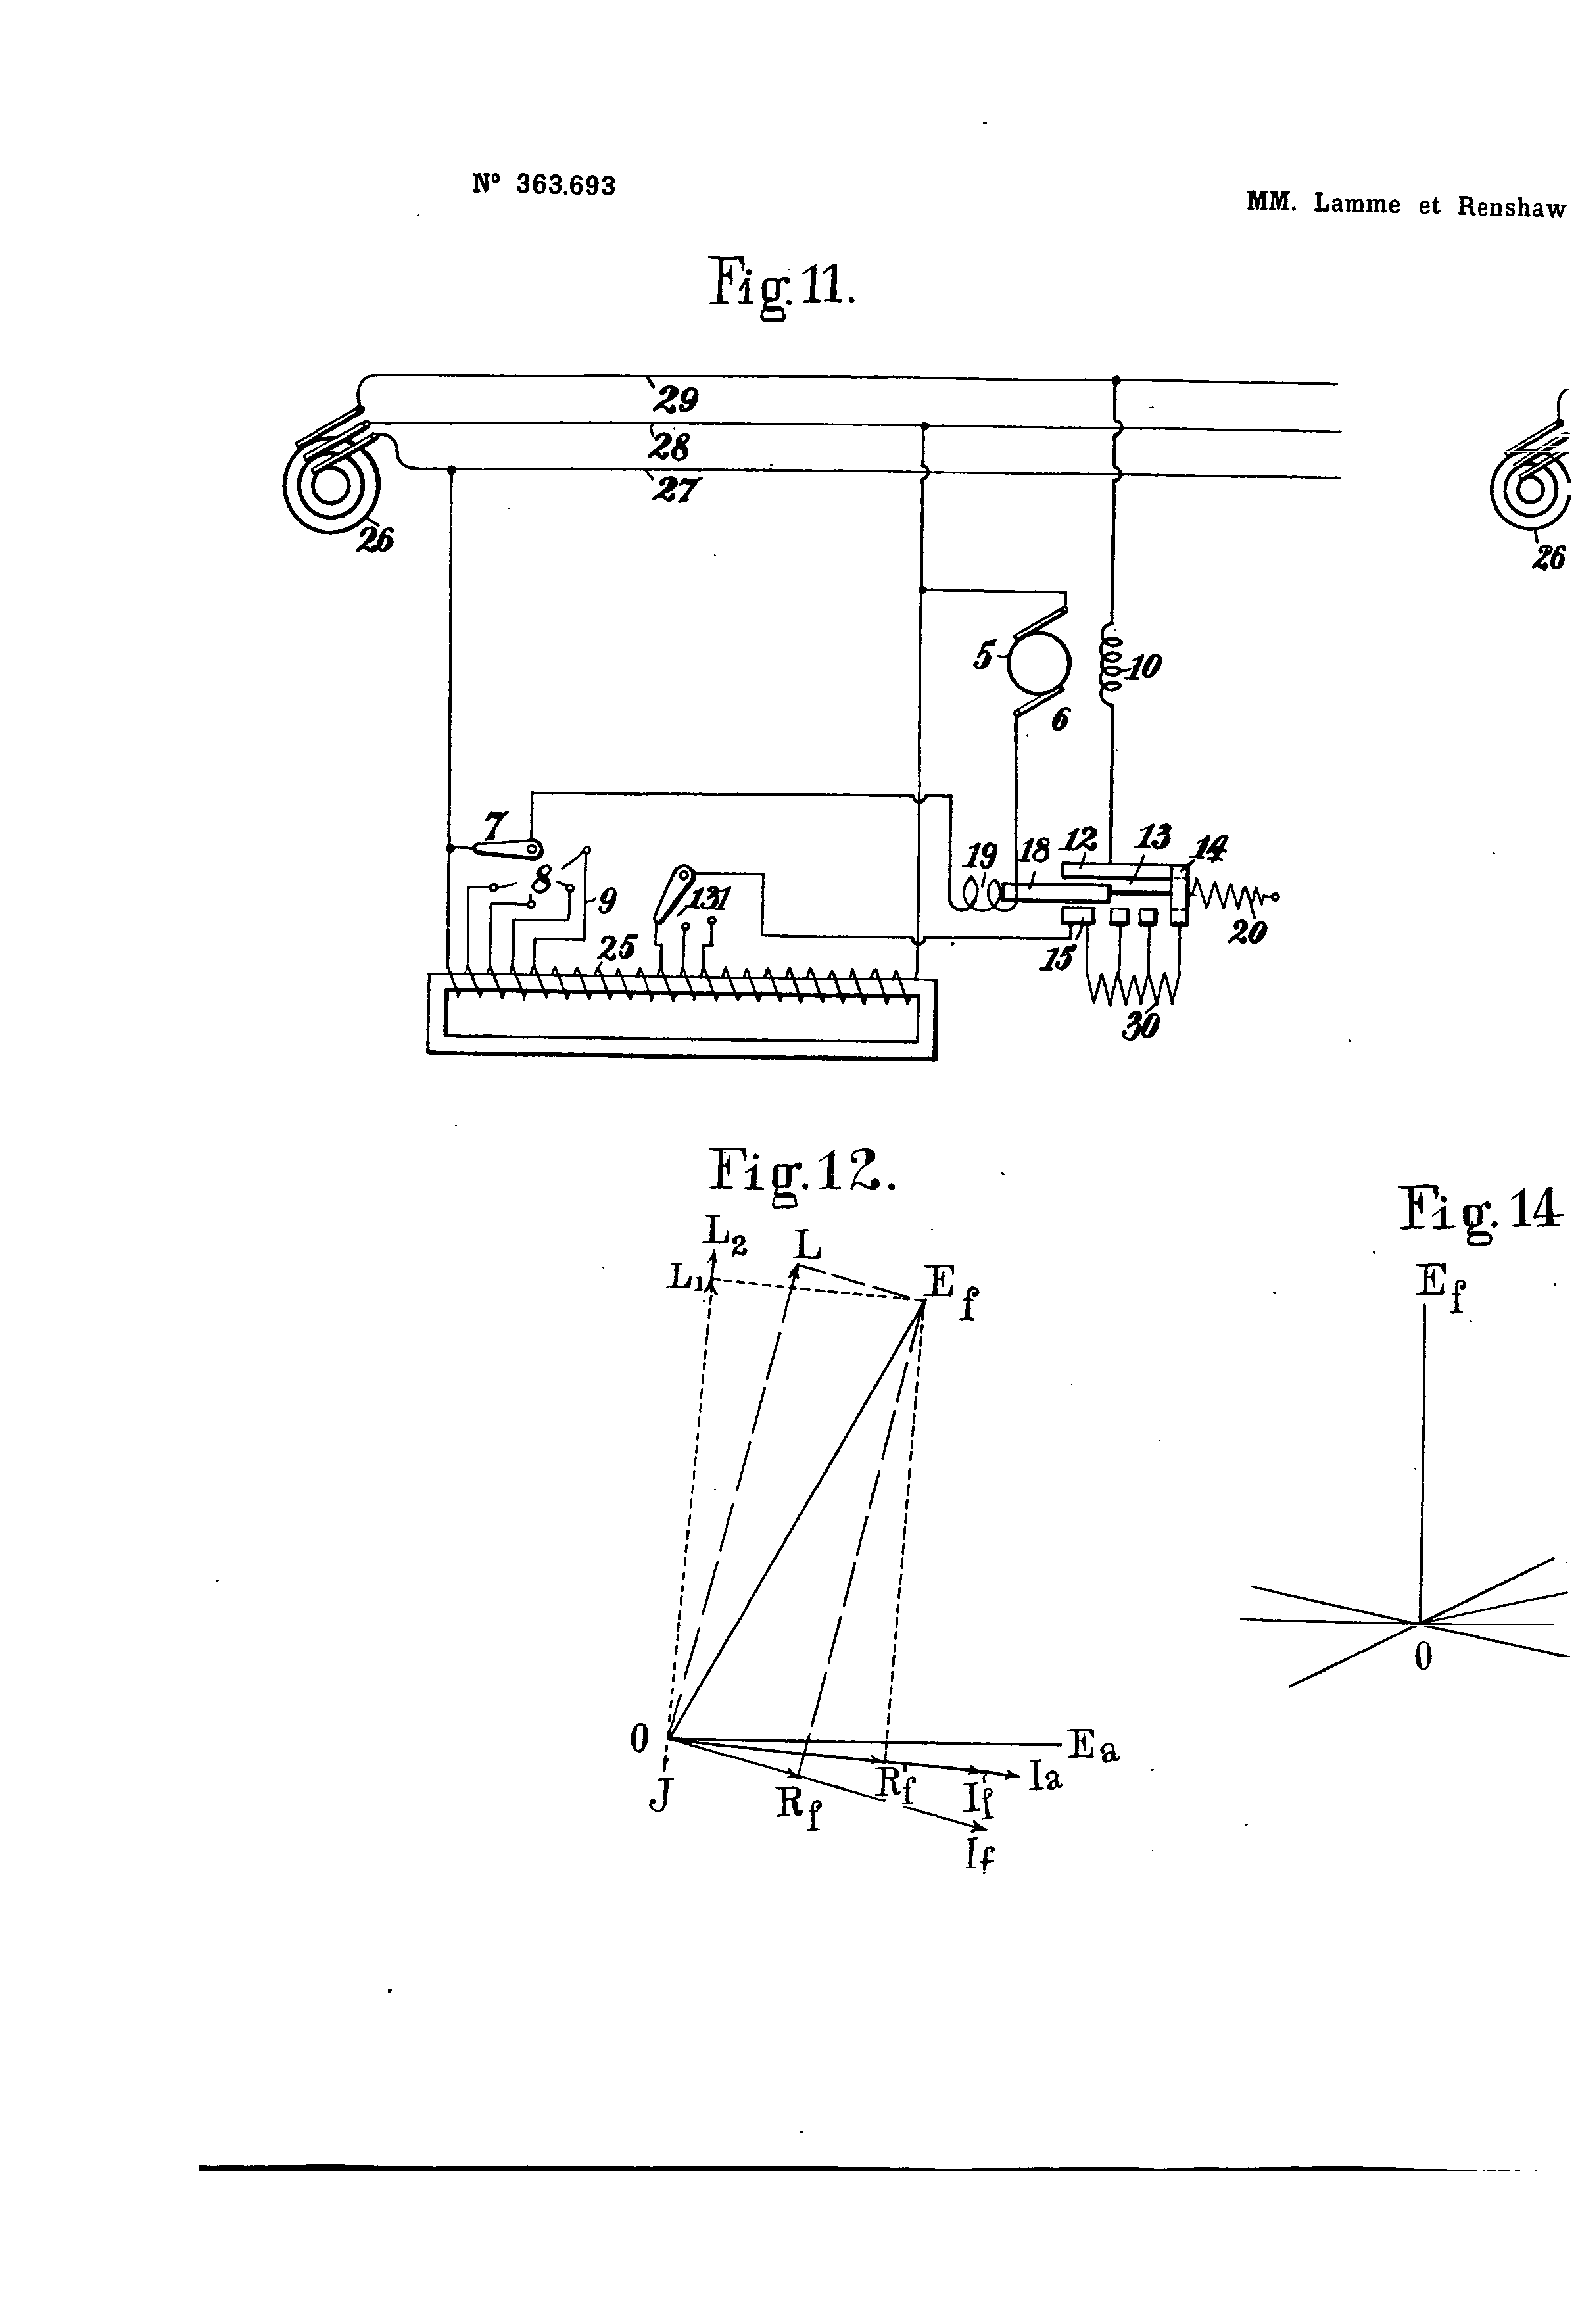 Nº 363.693
MM. Lamme et Renshaw
Fig. 11.
29
28
27
26
26
5
10
6
7
8
9
131
25
19
18
12
13
14
15
20
30
Fig. 12.
L2
L
L1
Ef
O
Ea
J
Rf
R'f
I'f
Ia
If
Fig. 14
Ef
O